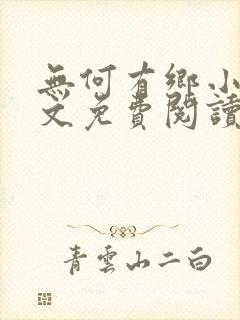 無何有鄉小
文免費閱讀
青雲山二白